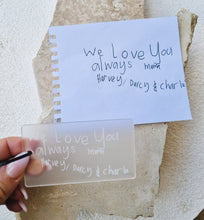 We Love You
always mum
Harvey, Darcy & charlie
We Love You
always mum
Harvey, Darcy & charlie